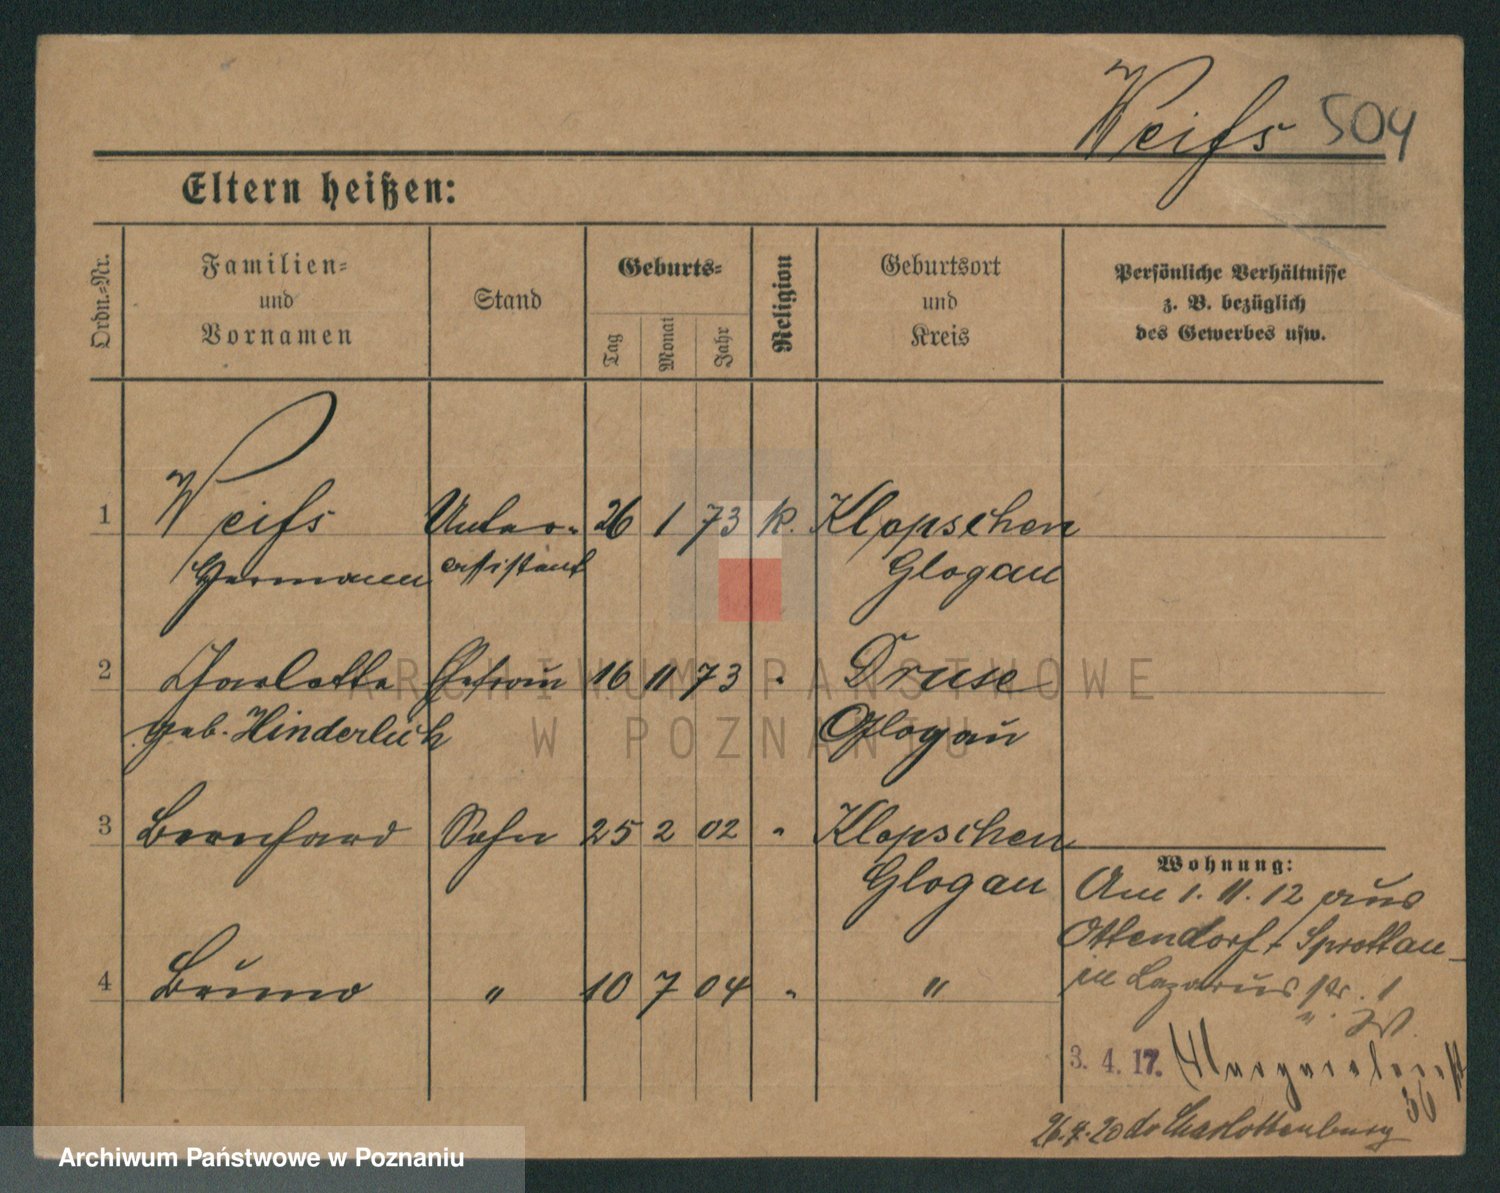 Weiß 504
Eltern heißen:
Ordn.-Nr.
Familien-
und
Vornamen
Stand
Geburts-
Tag
Monat
Jahr
Religion
Geburtsort
und
Kreis
Persönliche Verhältnisse
z. B. bezüglich
des Gewerbes usw.
1 Weiß Unter- 26 1 73 k. Klopschen
Hermann assistent Glogau
2 Charlotte Ehefrau 16 11 73 " Druse
geb. Hinderlich Glogau
3 Bernhard Sohn 25 2 02 " Klopschen
Glogau
4 Bruno " 10 7 04 " "
Wohnung:
Am 1. 11. 12 aus
Ottendorf Sprottau
in Lazarus str. 1
3. 4. 17. Margaretenst
36
26.4.20 Charlottenburg
ARCHIWUM PAŃSTWOWE
W POZNANIU
Archiwum Państwowe w Poznaniu